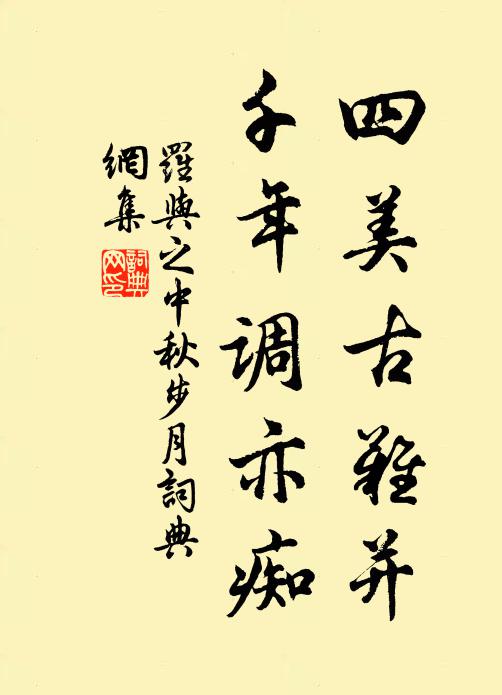 四美古難并
千年調亦痴
羅與之中秋步月詞典
網集
詞典網印